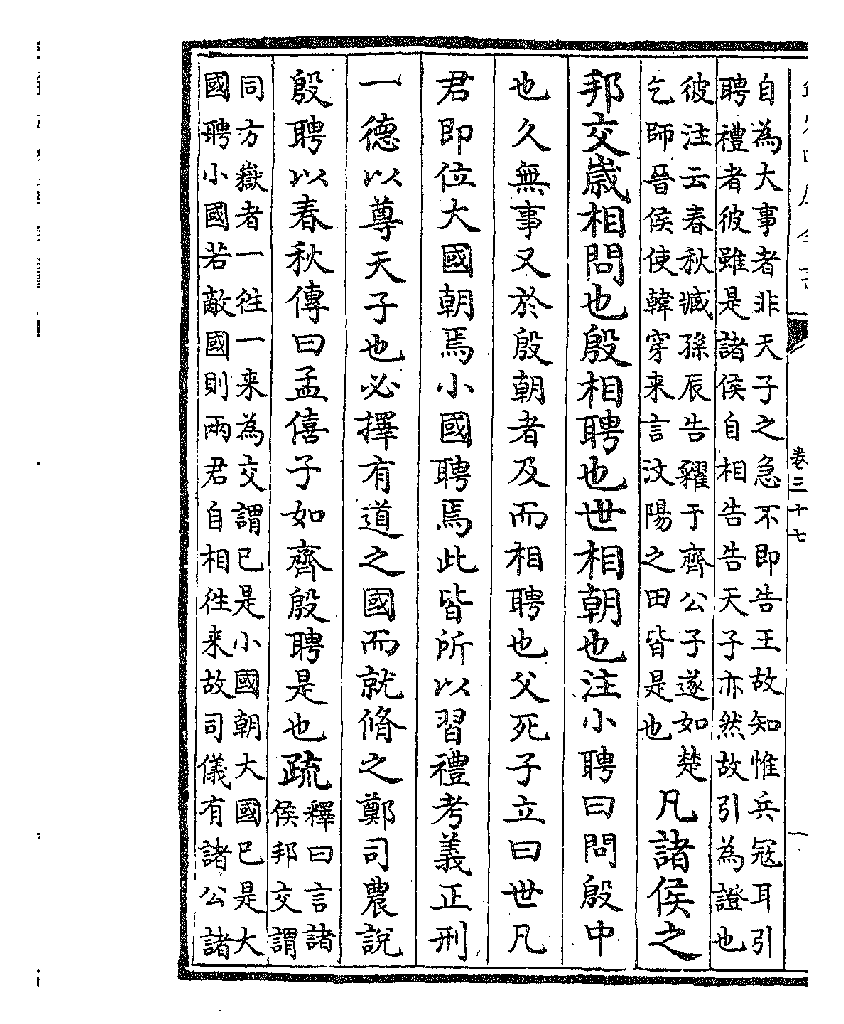 卷三十七
自為大事者非天子之急不即告王故知惟兵冦耳引
聘禮者彼雖是諸侯自相告告天子亦然故引為證也
彼注云春秋臧孫辰告糴于齊公子遂如楚
乞師晉侯使韓穿來言汶陽之田皆是也
凡諸侯之
邦交歲相問也殷相聘也世相朝也注小聘曰問殷中
也久無事又於殷朝者及而相聘也父死子立曰世凡
君即位大國朝焉小國聘焉此皆所以習禮考義正刑
一德以尊天子也必擇有道之國而就脩之鄭司農說
殷聘以春秋傳曰孟僖子如齊殷聘是也疏
釋曰言諸
侯邦交謂
同方嶽者一徃一來為交謂已是小國朝大國已是大
國聘小國若敵國則兩君自相徃来故司儀有諸公諸